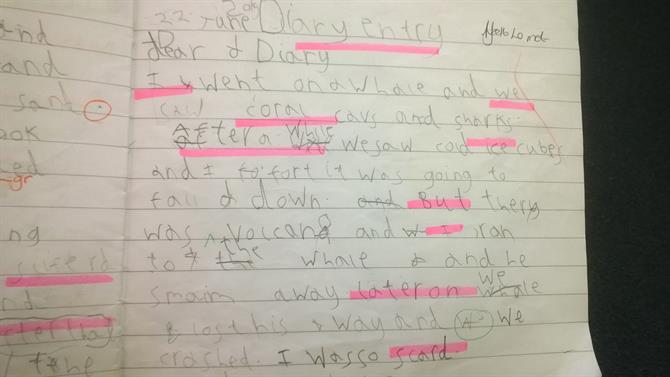 22 June Diary entry
Dear Diary
I went on a whale and we
coral cavs and sharks.
Aftera While we saw cold ice cubes
and I fort it was going to
fall down. and But there
was volcano and I ran
to the whale and he
smaim away later on we whale
lost his way and we
crashed. I wasso scard.
and
and
sand.
ook
ed
ng
scared
nd
the